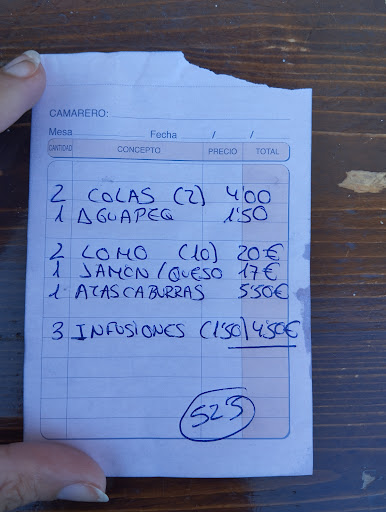 CAMARERO:
Mesa Fecha / /
CANTIDAD CONCEPTO PRECIO TOTAL
2 COLAS (2) 4'00
1 AGUAPEQ 1'50
2 LOMO (10) 20€
1 JAMON/QUESO 17€
1 ATASCABURRAS 5'50€
3 INFUSIONES (1'50) 4'50€
52'5